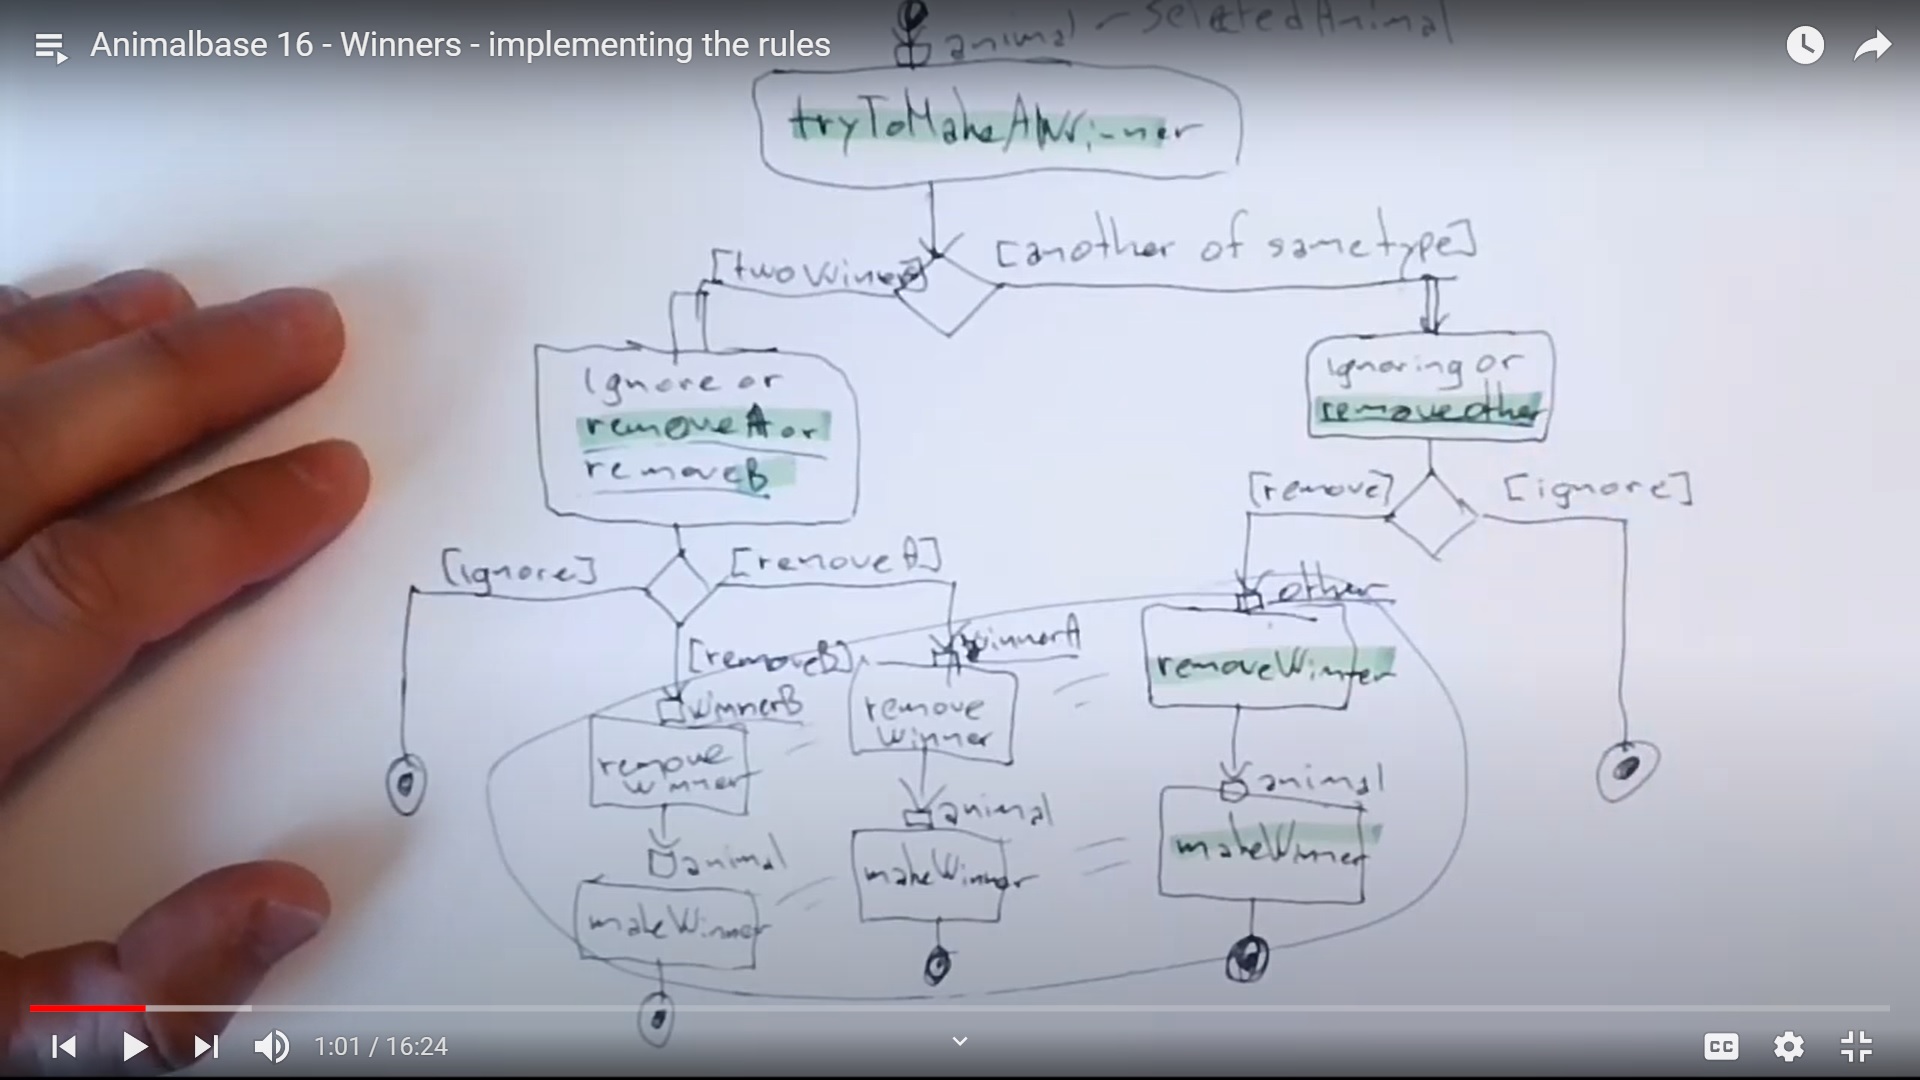 Animalbase 16 - Winners - implementing the rules
animal - SelectedAnimal
tryToMakeAWinner
[twoWiners]
[another of same type]
Ignore or
removeA or
removeB
Ignoring or
removeother
[remove]
[ignore]
[ignore]
[removeA]
other
[removeB]
winnerA
removeWinner
winnerB
remove
winner
remove
winner
animal
animal
animal
makeWinner
makeWinner
makeWinner
1:01 / 16:24
CC